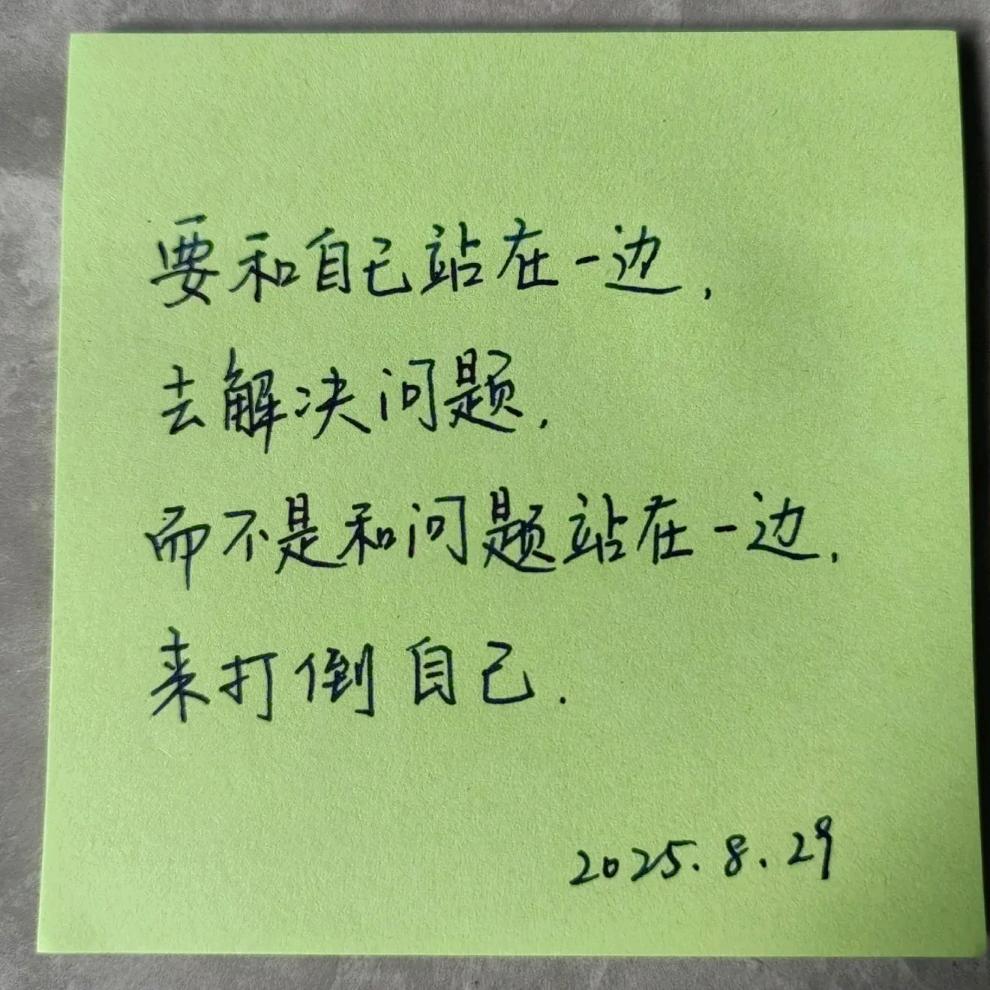 要和自己站在一边,
去解决问题.
而不是和问题站在一边,
来打倒自己.
2025.8.29